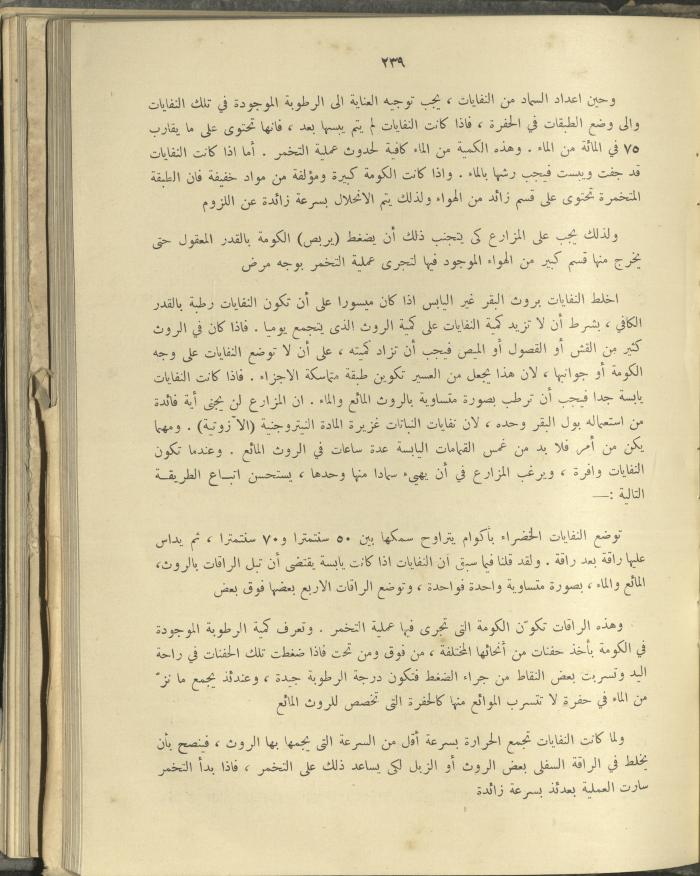 ٢٣٩
وحين اعداد السماد من النفايات ، يجب توجيه العناية الى الرطوبة الموجودة في تلك النفايات
والى وضع الطبقات في الحفرة ، فاذا كانت النفايات لم يتم يبسها بعد ، فانها تحتوى على ما يقارب
٧٥ في المائة من الماء . وهذه الكمية من الماء كافية لحدوث عملية التخمر . أما اذا كانت النفايات
قد جفت ويبست فيجب رشها بالماء . واذا كانت الكومة كبيرة ومؤلفة من مواد خفيفة فان الطبقة
المتخمرة تحتوى على قسم زائد من الهواء ولذلك يتم الانحلال بسرعة زائدة عن اللزوم
ولذلك يجب على المزارع كى يتجنب ذلك أن يضغط (يربص) الكومة بالقدر المعقول حتى
يخرج منها قسم كبير من الهواء الموجود فيها لتجرى عملية التخمر بوجه مرض
اخلط النفايات بروث البقر غير اليابس اذا كان ميسورا على أن تكون النفايات رطبة بالقدر
الكافي ، بشرط أن لا تزيد كمية النفايات على كمية الروث الذى يتجمع يوميا . فاذا كان في الروث
كثير من القش أو القصول أو الميص فيجب أن تزاد كميته ، على أن لا توضع النفايات على وجه
الكومة أو جوانبها ، لان هذا يجعل من العسير تكوين طبقة متماسكة الاجزاء . فاذا كانت النفايات
يابسة جدا فيجب أن ترطب بصورة متساوية بالروث المائع والماء . ان المزارع لن يجنى أية فائدة
من استعماله بول البقر وحده ، لان نفايات النباتات غزيرة المادة النيتروجنية (الآزوتية) . ومهما
يكن من أمر فلا بد من غمس القمامات اليابسة عدة ساعات في الروث المائع . وعندما تكون
النفايات وافرة ، ويرغب المزارع في أن يهيىء سمادا منها وحدها ، يستحسن اتباع الطريقة
التالية :—
توضع النفايات الخضراء بأكوام يتراوح سمكها بين ٥٠ سنتمترا و٧٠ سنتمترا ، ثم يداس
عليها راقة بعد راقة . ولقد قلنا فيما سبق ان النفايات اذا كانت يابسة يقتضى أن تبل الراقات بالروث،
المائع والماء ، بصورة متساوية واحدة فواحدة ، وتوضع الراقات الاربع بعضها فوق بعض
وهذه الراقات تكوّن الكومة التى تجرى فيها عملية التخمر . وتعرف كمية الرطوبة الموجودة
في الكومة بأخذ حفنات من أنحائها المختلفة ، من فوق ومن تحت فاذا ضغطت تلك الحفنات في راحة
اليد وتسربت بعض النقاط من جراء الضغط فتكون درجة الرطوبة جيدة ، وعندئذ يجمع ما نزّ
من الماء في حفرة لا تتسرب الموائع منها كالحفرة التى تخصص للروث المائع
ولما كانت النفايات تجمع الحرارة بسرعة أقل من السرعة التى يجمها بها الروث ، فينصح بأن
يخلط في الراقة السفلى بعض الروث أو الزبل لكى يساعد ذلك على التخمر ، فاذا بدأ التخمر
سارت العملية بعدئذ بسرعة زائدة